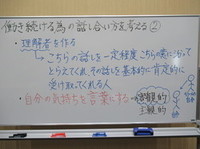 働き続ける為の話し合い方を考える②
・理解者を作る
→こちらの話しを一定程度こちらの側に立って
とらえてくれ、その話しを基本的に肯定的に
受け取ってくれる人
・自分の気持ちを言葉にする
客観的
主観的